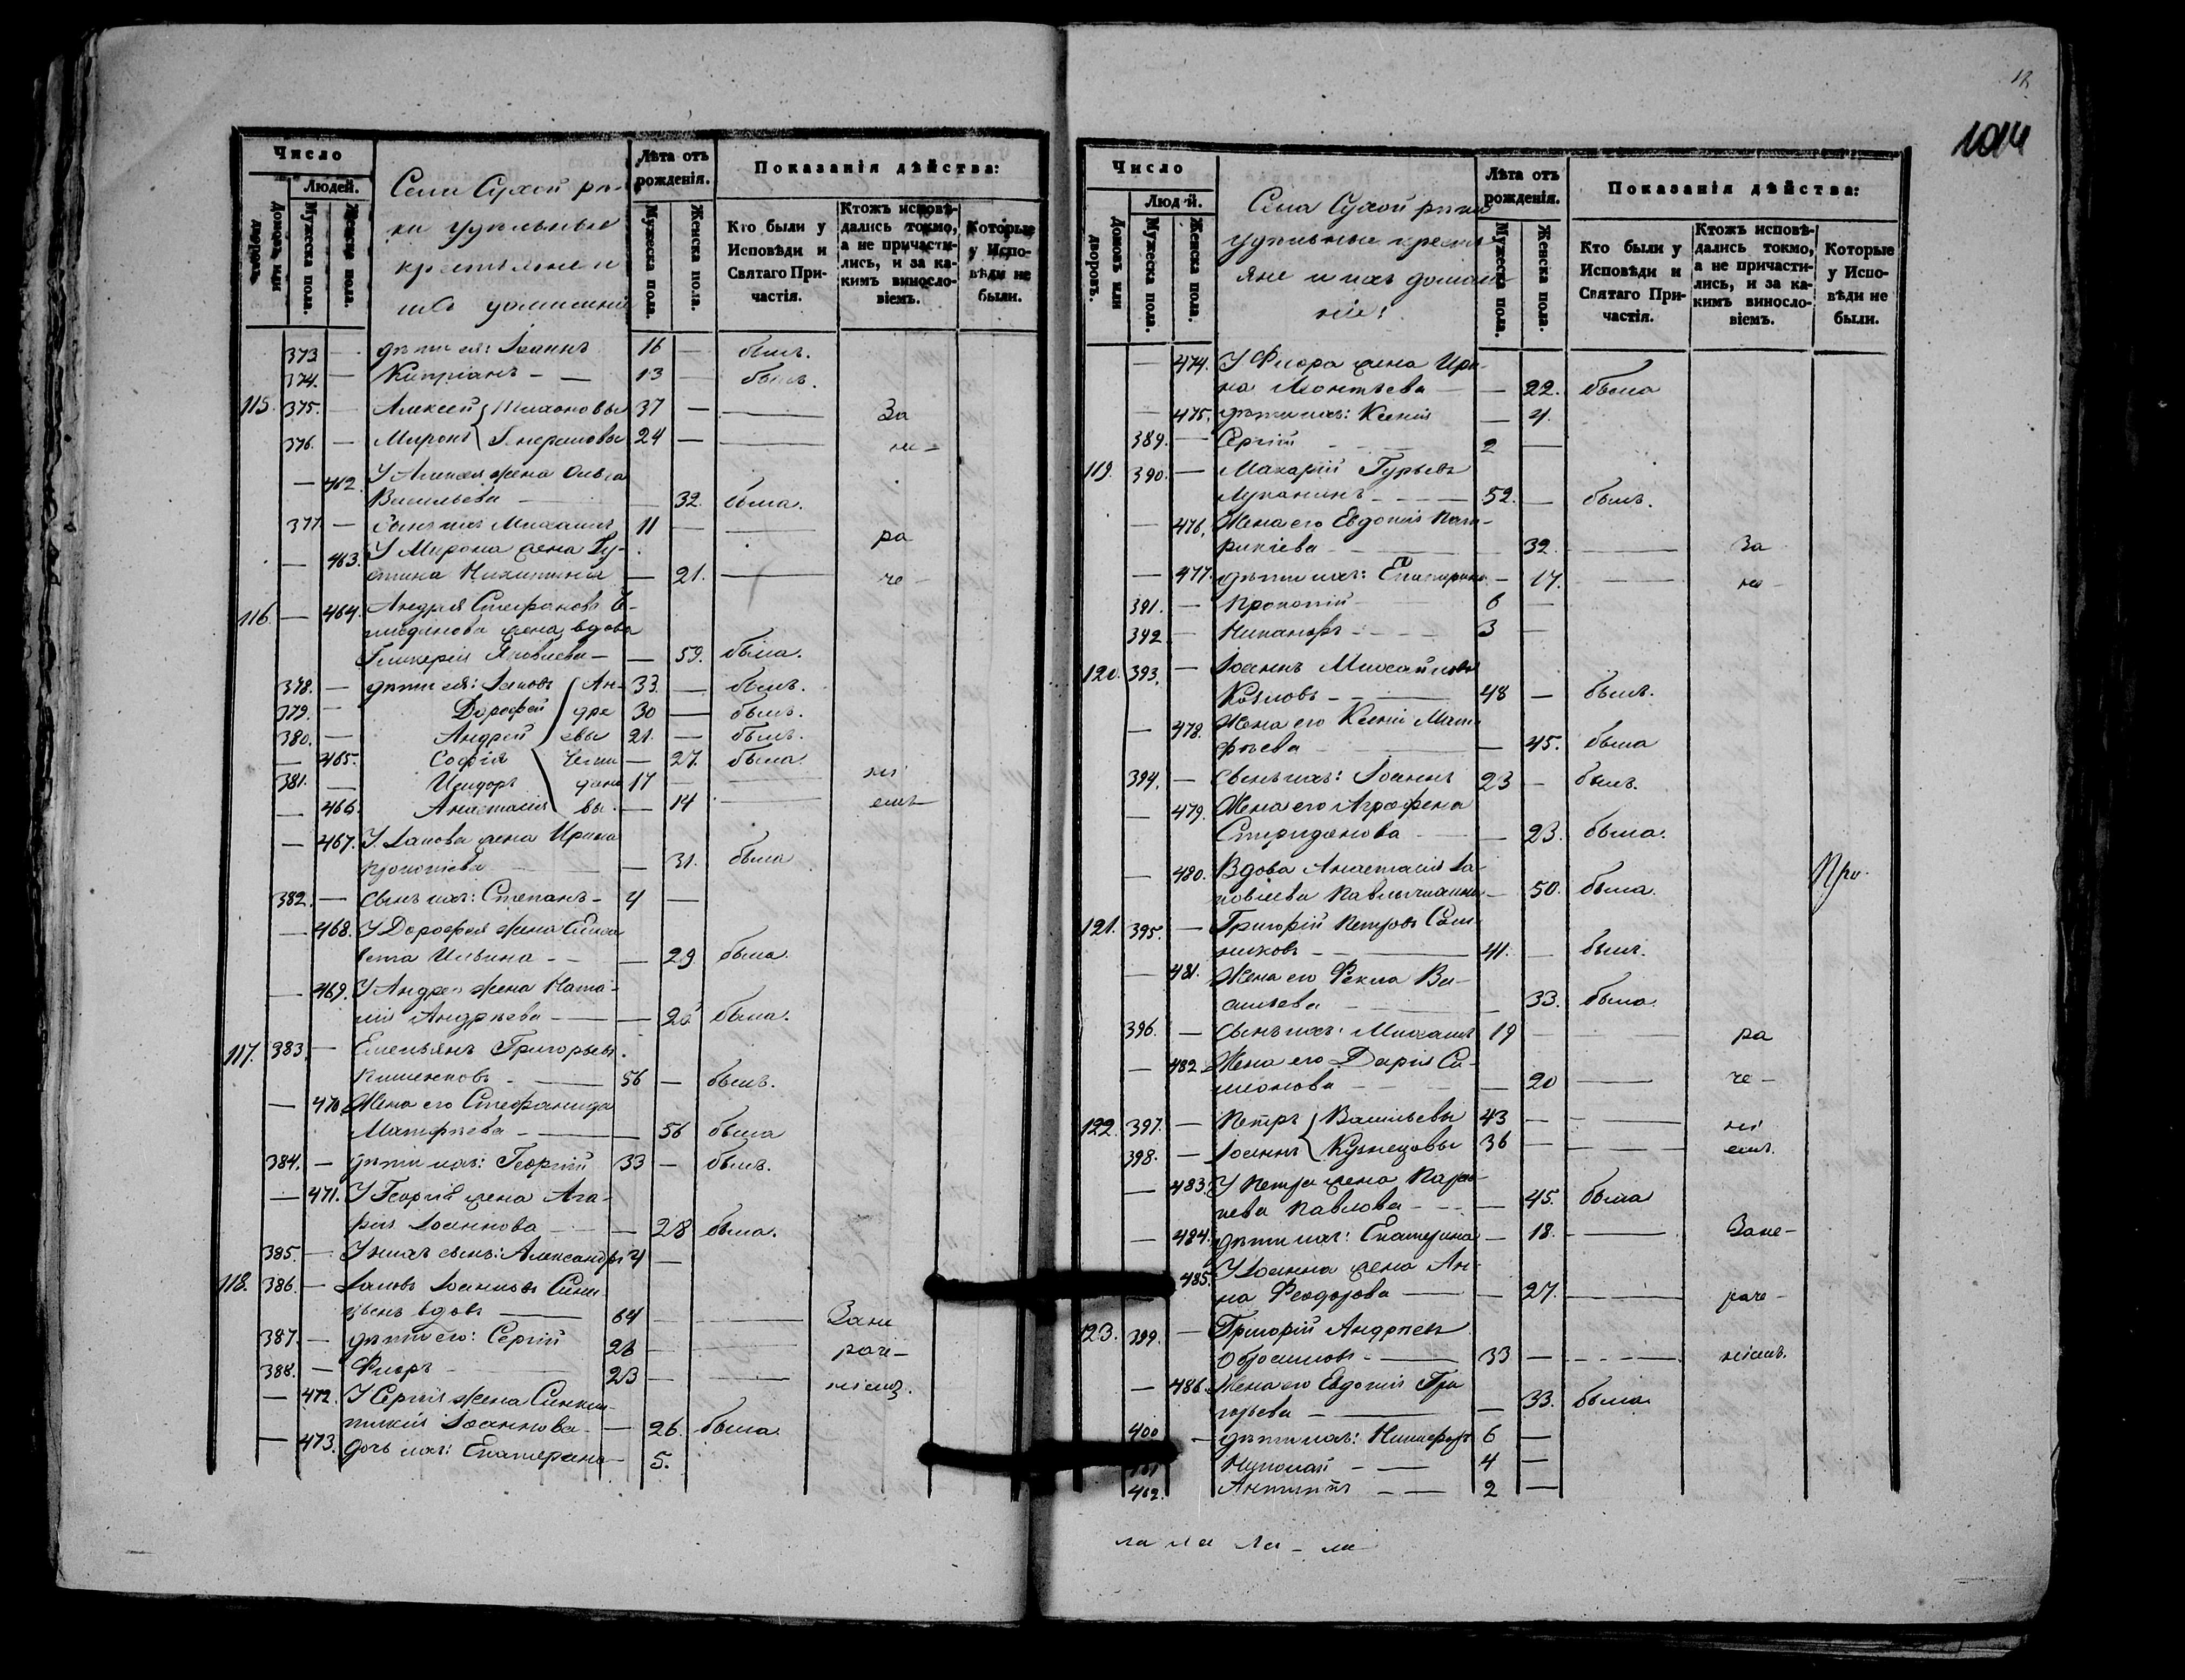 Число
Людей.
Домовъ или дворовъ.
Мужеска пола.
Женска пола.
Села Сухой рѣ-
ки удѣльные
крестьяне и
ихъ домашніе
Лѣта отъ рожденія.
Мужеска пола.
Женска пола.
Показанія дѣйства:
Кто были у Исповѣди и Святаго При-частія.
Ктожъ исповѣ-дались токмо, а не причасти-лись, и за ка-кимъ винословіемъ.
Которые у Испо-вѣди не были.
373 — дѣти ея: Іоаннъ 16 — былъ.
374. — Кипріанъ — — 13 — былъ.
115. 375. — Алексей Тихоновы 37 — — За
376. — Миронъ 24 — — не-
— 462. У Алексея жена Ольга
Васильева — 32. была.
377. — Сынъ ихъ Михаилъ 11 — — ра
— 463. У Мирона жена Іу-
стина Никитина — 21. — че-
116. — 464. Андрея Стефанова
жена вдова
Гликерія Яковлева — — 59. была.
378. — дѣти ея: Іаковъ Ан- 33. — былъ.
379. — Дорофей дре 30 — былъ.
380. — Андрей евы 21. — былъ.
— 465. Софія — 27. была.
381. — Исидоръ 17 — — ні
— 466. Анастасія вы. — 14 — емъ
— 467. У Іакова жена Ирина
Прокопіева — 31. была
382. — Сынъ ихъ: Степанъ — 4 —
— 468. У Дорофея жена Елиса
вета Ильина — — — 29 была.
— 469. У Андрея жена Ната-
лія Андреева — — 26 была.
117. 383. — Емельянъ Григорьевъ
— 56 — былъ.
— 470. Жена его Стефанида
Матфѣева — — 56 была
384. — дѣти ихъ: Георгій 33 — былъ.
— 471. У Георгія жена Ага-
фія Іоаннова — — 28 была.
385. — У нихъ сынъ: Александръ 4 —
118. 386. — Іаковъ Іоанновъ Сини
цынъ вдовъ — 64 — — Зане
387. — дѣти его: Сергій 26 — — раче-
388. — Флоръ — 23 — — ніемъ.
— 472. У Сергія жена Синкли-
тикія Іоаннова — — 26. была.
— 473. дочь ихъ: Екатерина — 5.
1014
Число
Людей.
Домовъ или дворовъ.
Мужеска пола.
Женска пола.
Села Сухой рѣки
удѣльные кресть
яне и ихъ домаш-
ніе:
Лѣта отъ рожденія.
Мужеска пола.
Женска пола.
Показанія дѣйства:
Кто были у Исповѣди и Святаго При-частія.
Ктожъ исповѣ-дались токмо, а не причасти-лись, и за ка-кимъ винословіемъ.
Которые у Испо-вѣди не были.
— 474. У Флора жена Ири-
на Леонтьева — — 22. была
— 475. дѣти ихъ: Ксенія — 4.
389. — Сергій 2 —
119. 390. — Макарій Гурьевъ
Лукавинъ — — 52. — былъ.
— 476. Жена его Евдокія Пат-
рикіева — 32. — За
— 477. дѣти ихъ: Екатерина — 17. — не-
391. — Прокопій — 6 —
392 — Никаноръ — 3 —
120. 393. — Іоаннъ Михайловъ
Козловъ — 48 — былъ.
— 478. Жена его Ксенія Мат-
фѣева — 45. была
394. — сынъ ихъ: Іоаннъ 23 — былъ.
— 479. Жена его Агрофена
Спиридонова — — 23. была.
— 480. Вдова Анастасія Іа-
ковлева — 50. была.
При-
121. 395. — Григорій Петровъ Сал-
никовъ — 41. — былъ.
— 481. Жена его Фекла Ва-
сильева — 33. была.
396. — Сынъ ихъ: Михаилъ 19 — — ра
— 482. Жена его Дарія Си-
меонова — 20 — че-
122. 397. — Петръ Васильевы 43 — — ні
398. — Іоаннъ Кузнецовы 36 — — емъ.
— 483. У Петра жена Парас-
кева Павлова — — 45. была
— 484. дѣти ихъ: Екатерина — 18. — Зане-
— 485. У Іоанна жена Ан-
на Феодорова — — 27. — раче-
123. 399. — Григорій Андреевъ
Обросимовъ — 33 — — ніемъ.
— 486. Жена его Евдокія Гри
горьева — — 33. была
400 — дѣти ихъ: Никифоръ 6 —
401 Николай — — 4 —
402. Антипъ — — 2 —